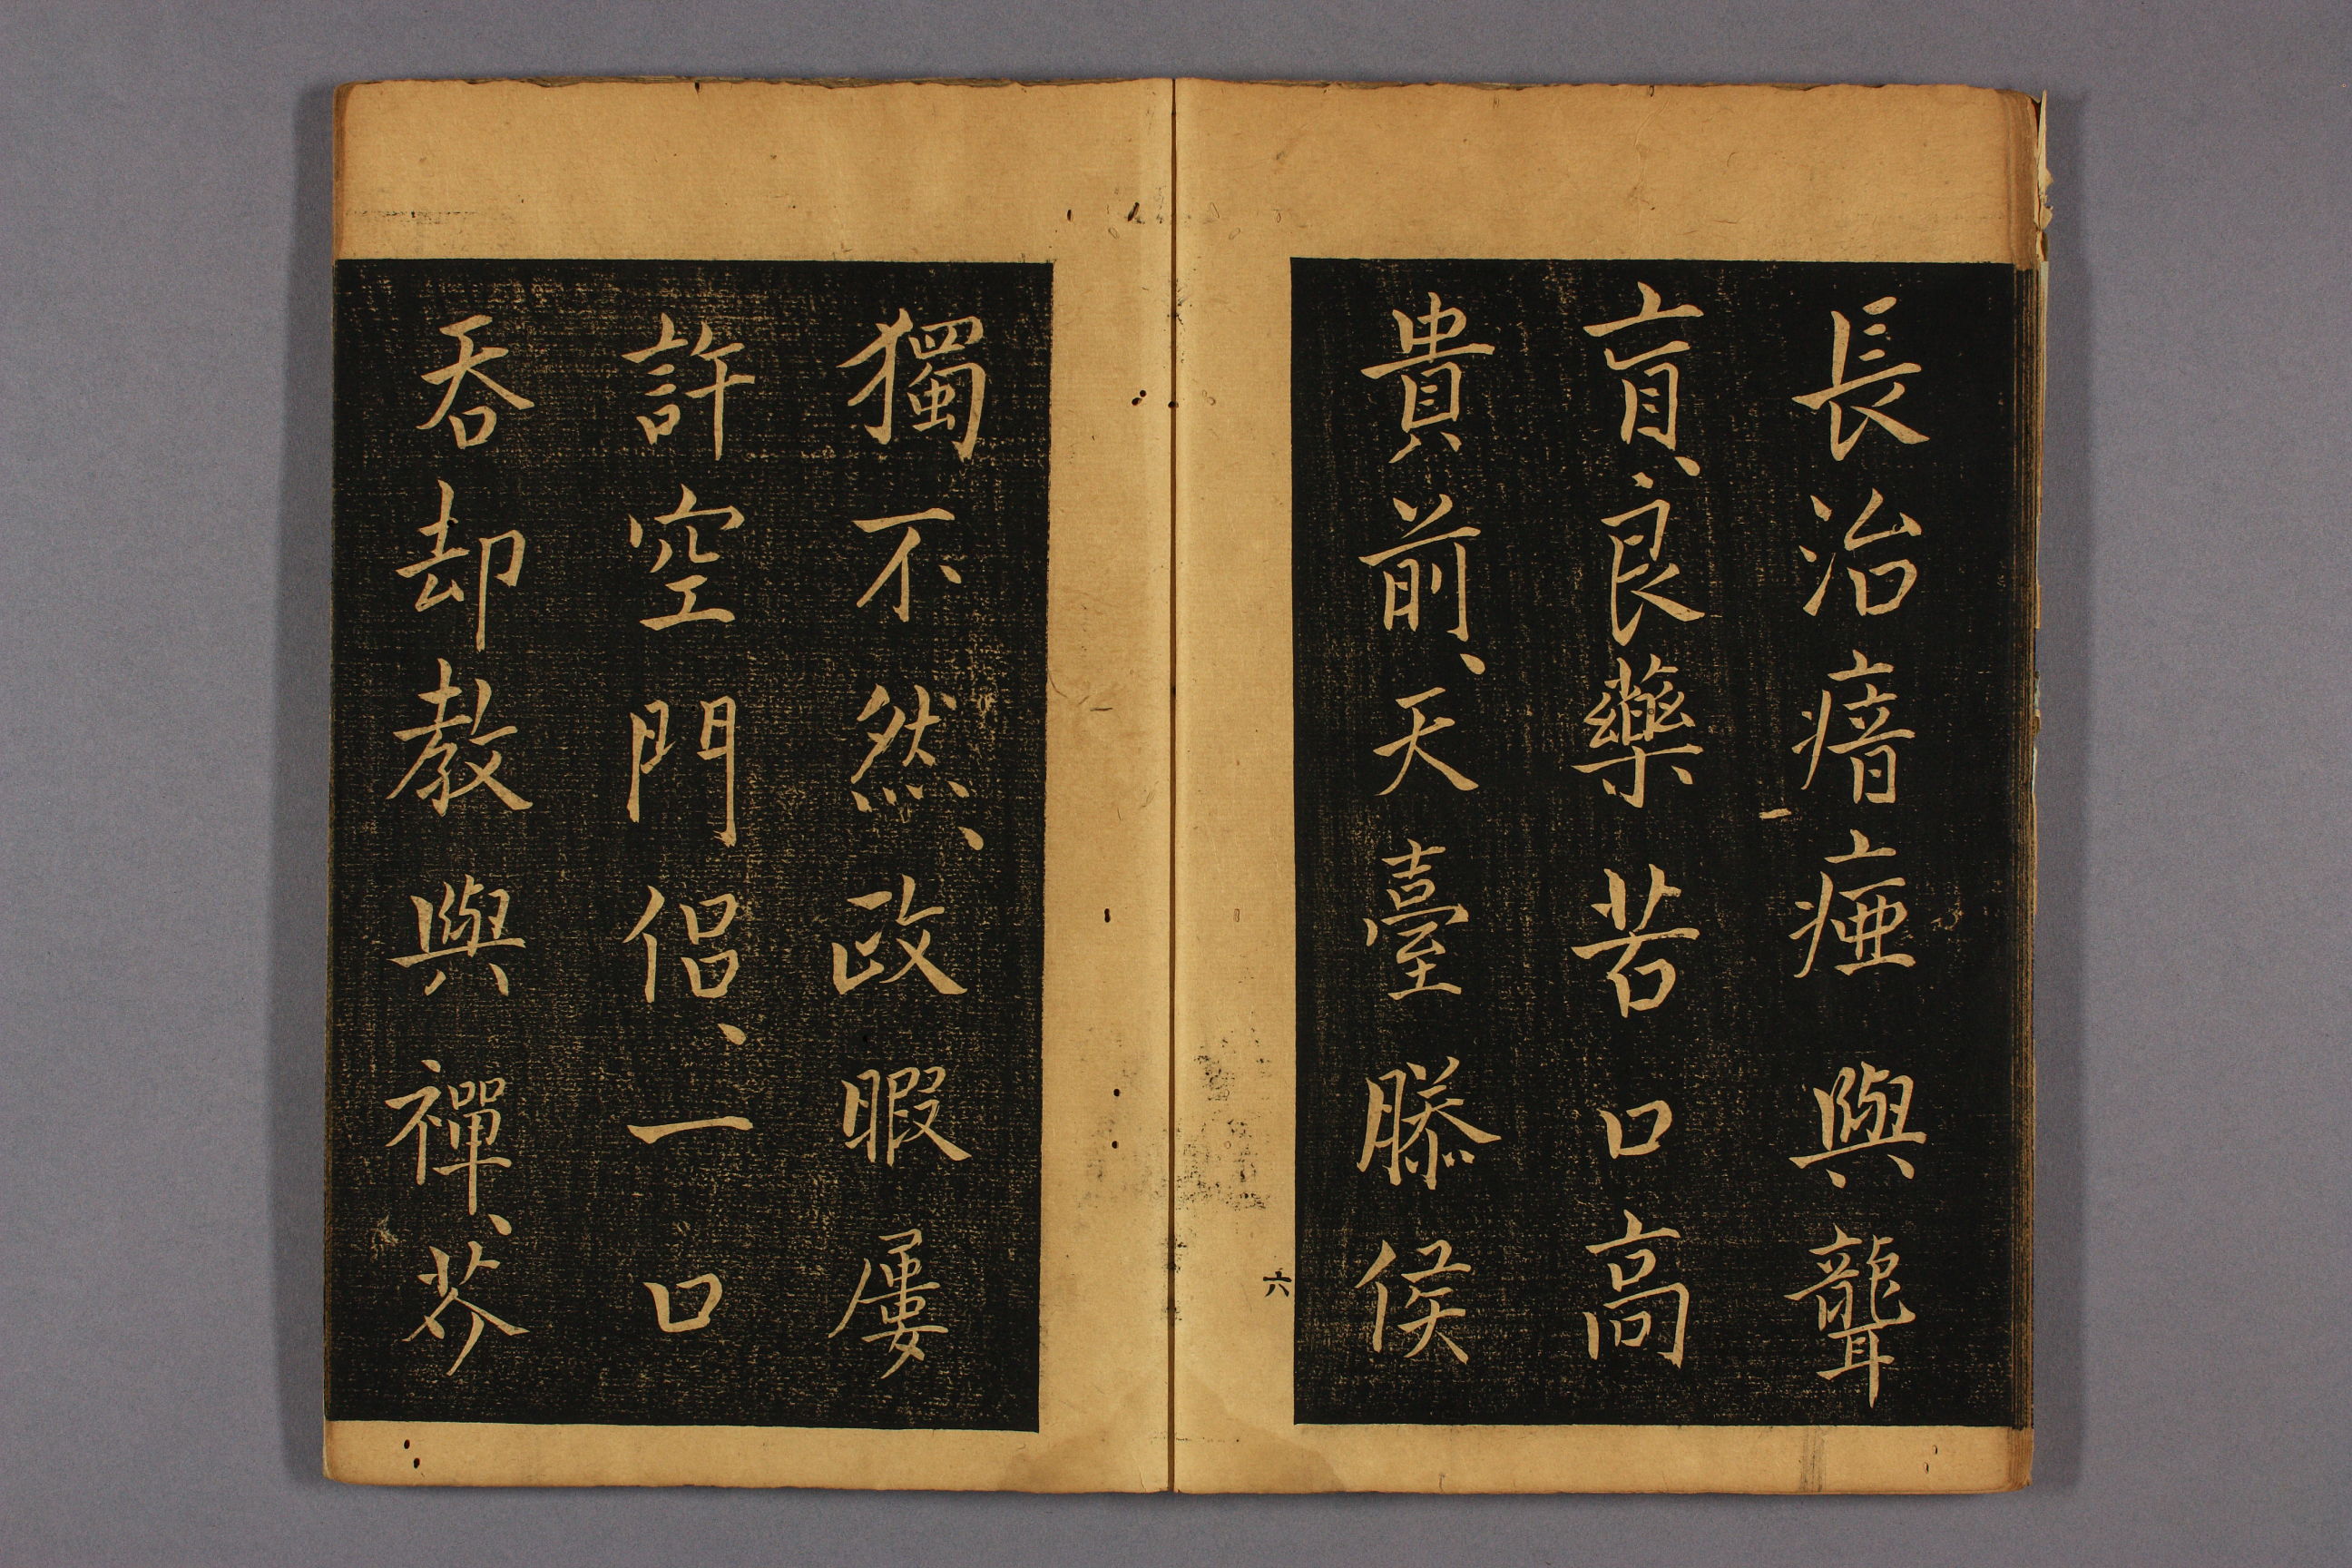 長治瘖瘂與聾
盲、良藥苦口高
貴前、天臺滕侯
六
獨不然、政暇屢
許空門侶、一口
吞却教與禪、芥